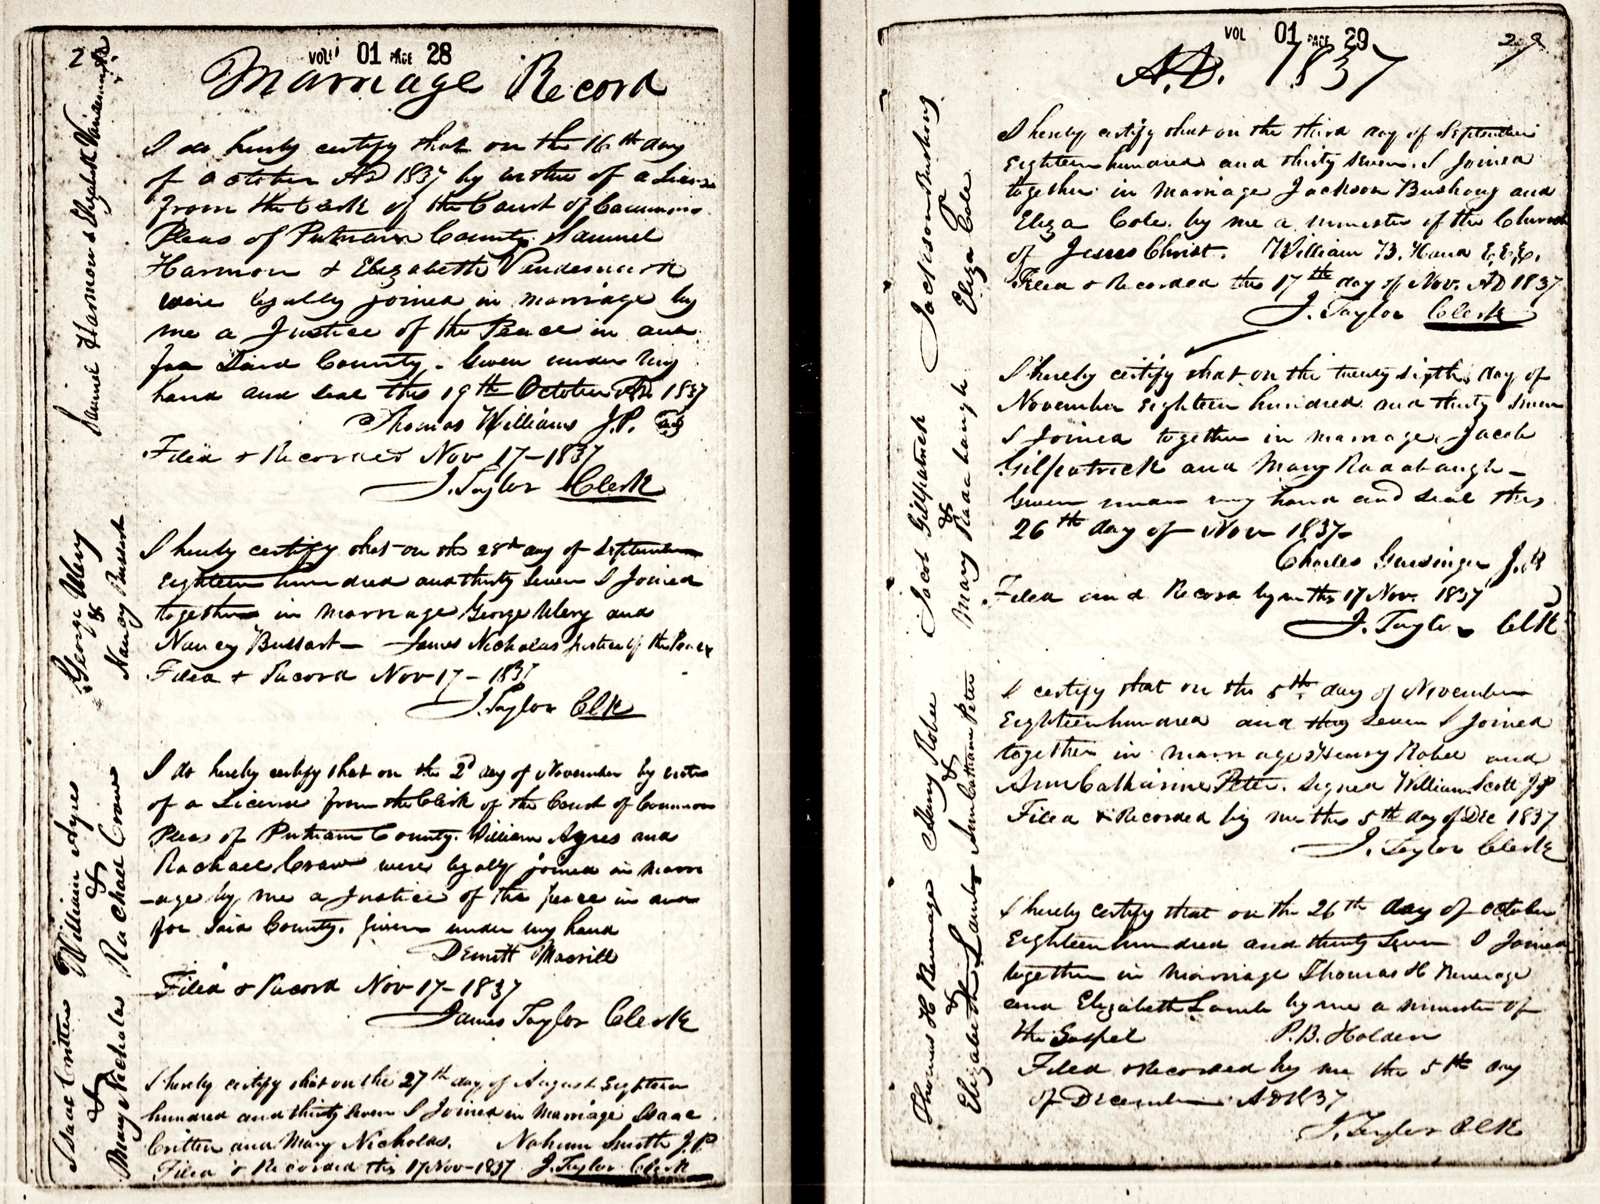 VOL 01 PAGE 28
Marriage Record
Samuel Harmon & Elizabeth Vandemark
I do hereby certify that on the 16th day
of October AD 1837 by virtue of a Licens
from the Clerk of the Court of Common
Pleas of Putnam County, Samuel
Harmon & Elizabeth Vandemark
were legally joined in marriage by
me a Justice of the Peace in and
for Said County. Given under my
hand and seal this 19th October AD 1837
Thomas Williams J.P.
Filed & Recorded Nov 17-1837
J. Taylor Clerk
George Ulery
&
Nancy Bussart
I hereby certify that on the 28th day of September
Eighteen hundred and thirty Seven I Joined
together in marriage George Ulery and
Nancy Bussart- James Nicholas Justice of the Peace
Filed & Record Nov-17-1837
J. Taylor Clk
William Ayres
&
Rachael Craw
I do hereby certify that on the 2d day of November by virtue
of a Licens from the Clerk of the Court of Common
Pleas of Putnam County. William Ayres and
Rachael Craw were legally joined in marri
-age by me a Justice of the peace in and
for Said County. given under my hand
Demitt Mackrill
Filed & Record Nov 17-1837
James Taylor Clerk
Isaac Criten
&
Mary Nicholas
I hereby certify that on the 27th day of August Eighteen
hundred and thirty Seven I Joined in Marriage Isaac
Criten and Mary Nicholas. Nahum Smith J.P.
Filed & Recorded this 17 Nov-1837 J. Taylor Clerk
VOL 01 PAGE 29
29
A.D. 1837
Jackson Bushong
&
Eliza Cole
I hereby certify that on the third day of September
Eighteen hundred and thirty Seven. I Joined
together in Marriage Jackson Bushong and
Eliza Cole. by me a minister of the Church
of Jesus Christ. William B. Hand
Filed & Recorded this 17th day of Nov. AD 1837
J. Taylor Clerk
Jacob Gilpatrick
&
Mary Radabaugh
I hereby certify that on the twenty Sixth day of
November Eighteen hundred and thirty Seven
I Joined together in marriage Jacob
Gilpatrick and Mary Radabaugh-
Given under my hand and seal this
26th day of Nov 1837-
Charles Gussinger J.P
Filed and Record by me this 17 Nov. 1837
J. Taylor Clk
Henry Robee
&
Ann Catharine Peter
I certify that on the 5th day of November
Eighteen hundred and thirty Seven I Joined
together in marriage Henry Robee and
Ann Catharine Peter. Signed William Scott J P
Filed & Recorded by me this 5th day of Dec 1837
J. Taylor Clerk
Thomas H Remage
&
Elizabeth Lamb
I hereby certify that on the 26th day of October
Eighteen hundred and thirty Seven I Joined
together in Marriage Thomas H Remage
and Elizabeth Lamb by me a minister of
the Gospel P.B. Holden
Filed & Recorded by me the 5th day
of December AD 1837
J. Taylor Clk